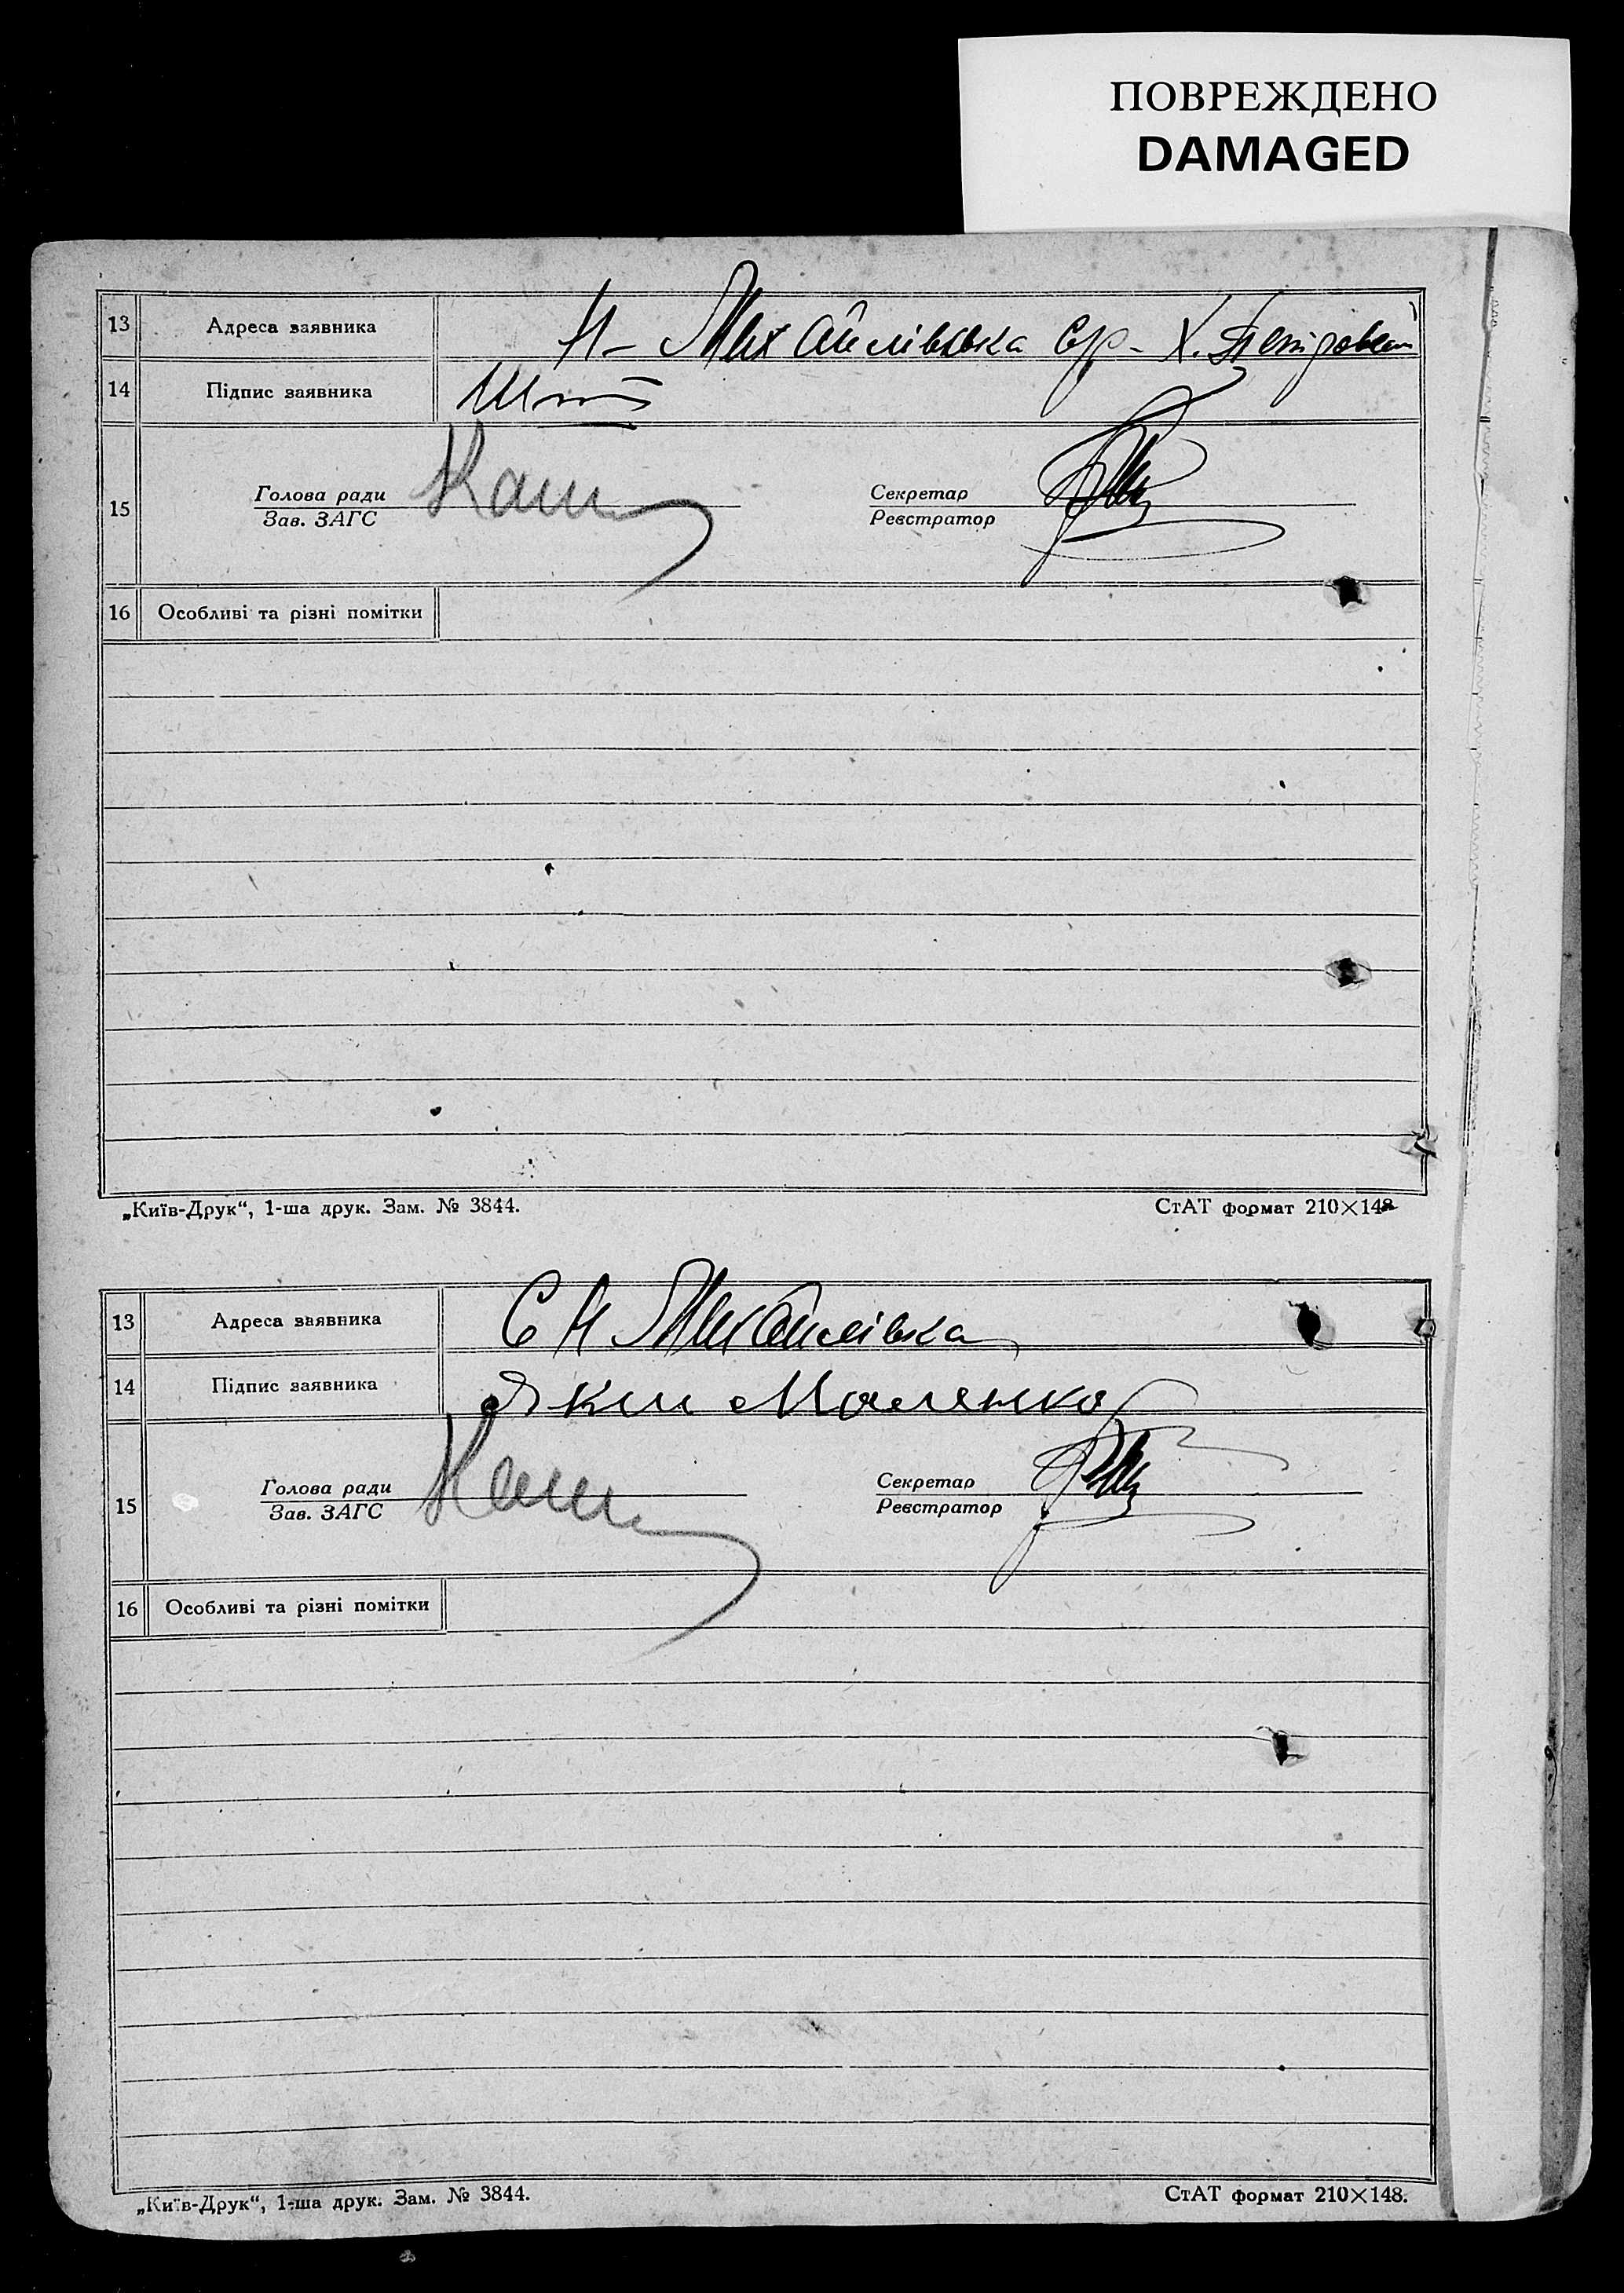 ПОВРЕЖДЕНО
DAMAGED
13 Адреса заявника Н- Михайлівка с/р- Х. Петровский
14 Підпис заявника
Голова ради Секретар
15 Зав. ЗАГС Реєстратор
16 Особливі та різні помітки
„Київ-Друк“, 1-ша друк. Зам. № 3844. СтАТ формат 210×148
13 Адреса заявника С Н Михайлівка
14 Підпис заявника Яким Маленко
Голова ради Секретар
15 Зав. ЗАГС Реєстратор
16 Особливі та різні помітки
„Київ-Друк“, 1-ша друк. Зам. № 3844. СтАТ формат 210×148.